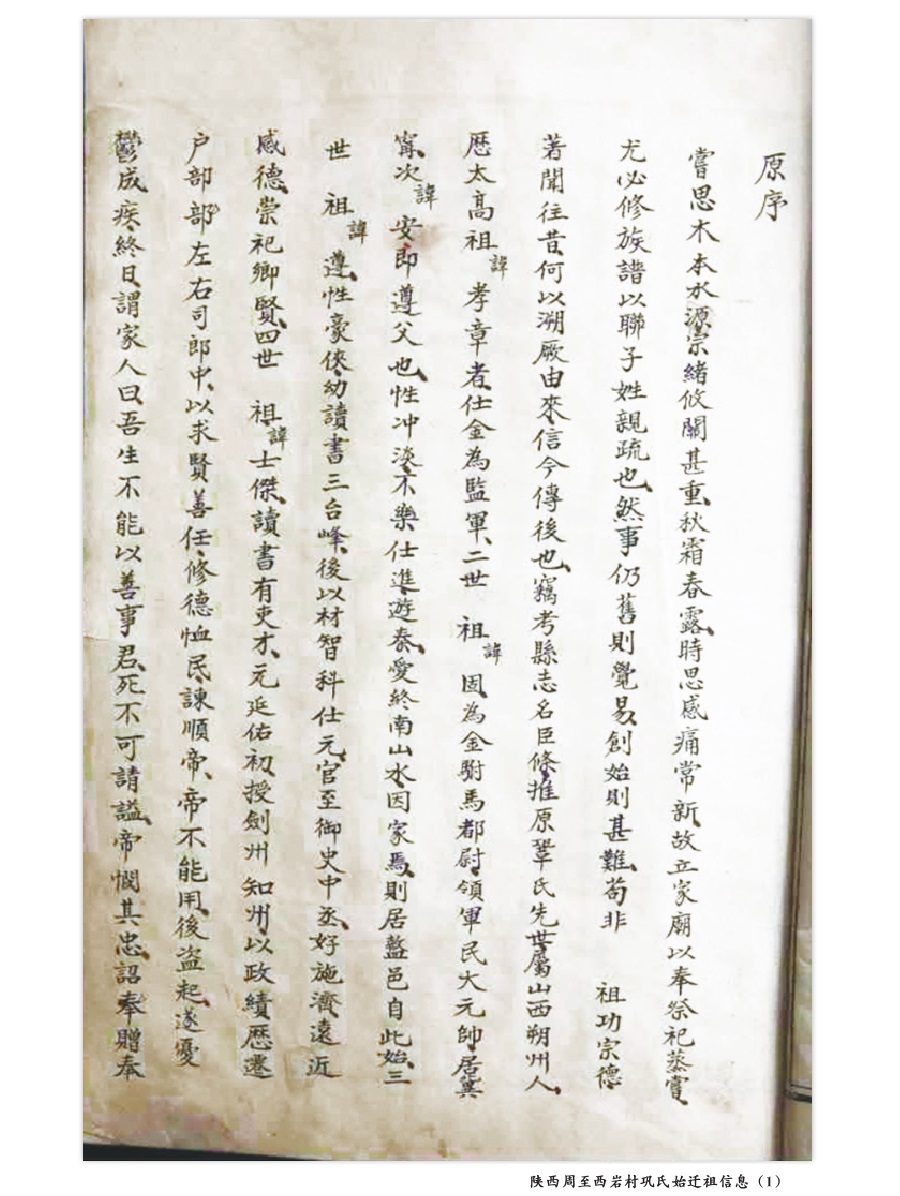 原序
嘗思木本水源宗緒攸關甚重秋霜春露時思感痛常新故立家廟以奉祭祀蒸嘗
尤必修族譜以聯子姓親疏也然事仍舊則覺易創始則甚難苟非 祖功宗德
著聞往昔何以溯厥由來信今傳後也竊考縣志名臣條推原鞏氏先世屬山西朔州人
歷太高祖諱孝章者仕金為監軍二世 祖諱因為金駙馬都尉領軍民大元帥居冀
甯次諱安即遵父也性冲淡不樂仕進遊秦愛終南山水因家焉則居盩邑自此始三
世 祖諱遵性豪俠幼讀書三台峰後以材智科仕元官至御史中丞好施濟遠近
感德崇祀鄉賢四世 祖諱士傑讀書有吏才元延佑初授劍州知州以政績歷遷
户部部左右司郎中以求賢善任修德恤民諫順帝帝不能用後盜起遂優
鬱成疾終日謂家人曰吾生不能以善事君死不可請謚帝憫其忠詔奉贈奉
陕西周至西岩村巩氏始迁祖信息（1）